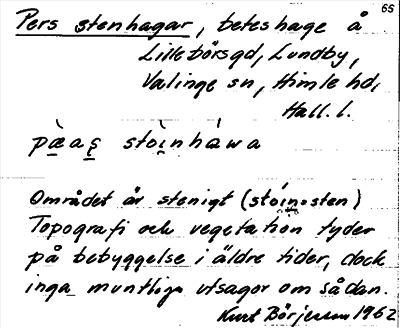 65
Pers stenhagar, beteshage å
Lillebörsgd, Lundby,
Valinge sn, Himle hd,
Hall. l.
pæ̀aʂ stòinháwa
Området är stenigt (stóin=sten)
Topografi och vegetation tyder
på bebyggelse i äldre tider, dock
inga muntliga utsagor om sådan.
Kurt Börjesson 1962